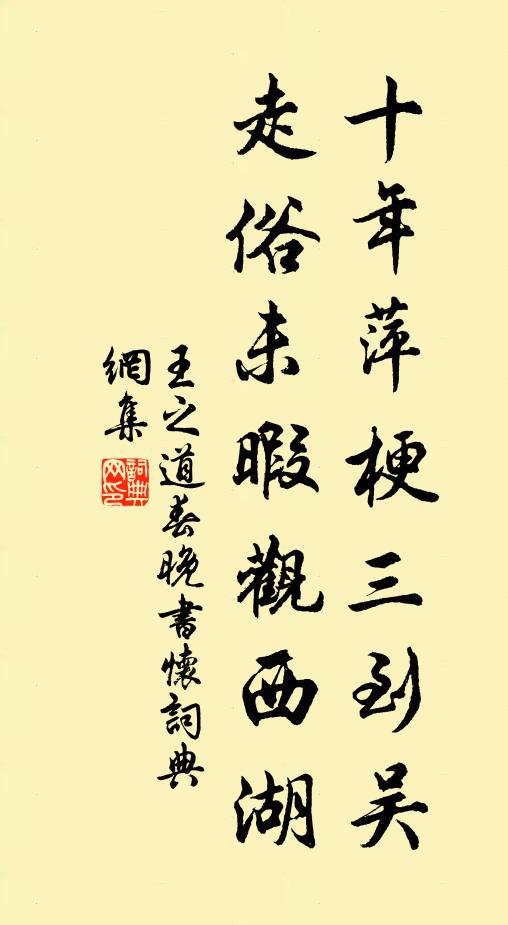 十年萍梗三到吴
走俗未暇觀西湖
王之道春晚書懷詞典
網集
詞典
网印